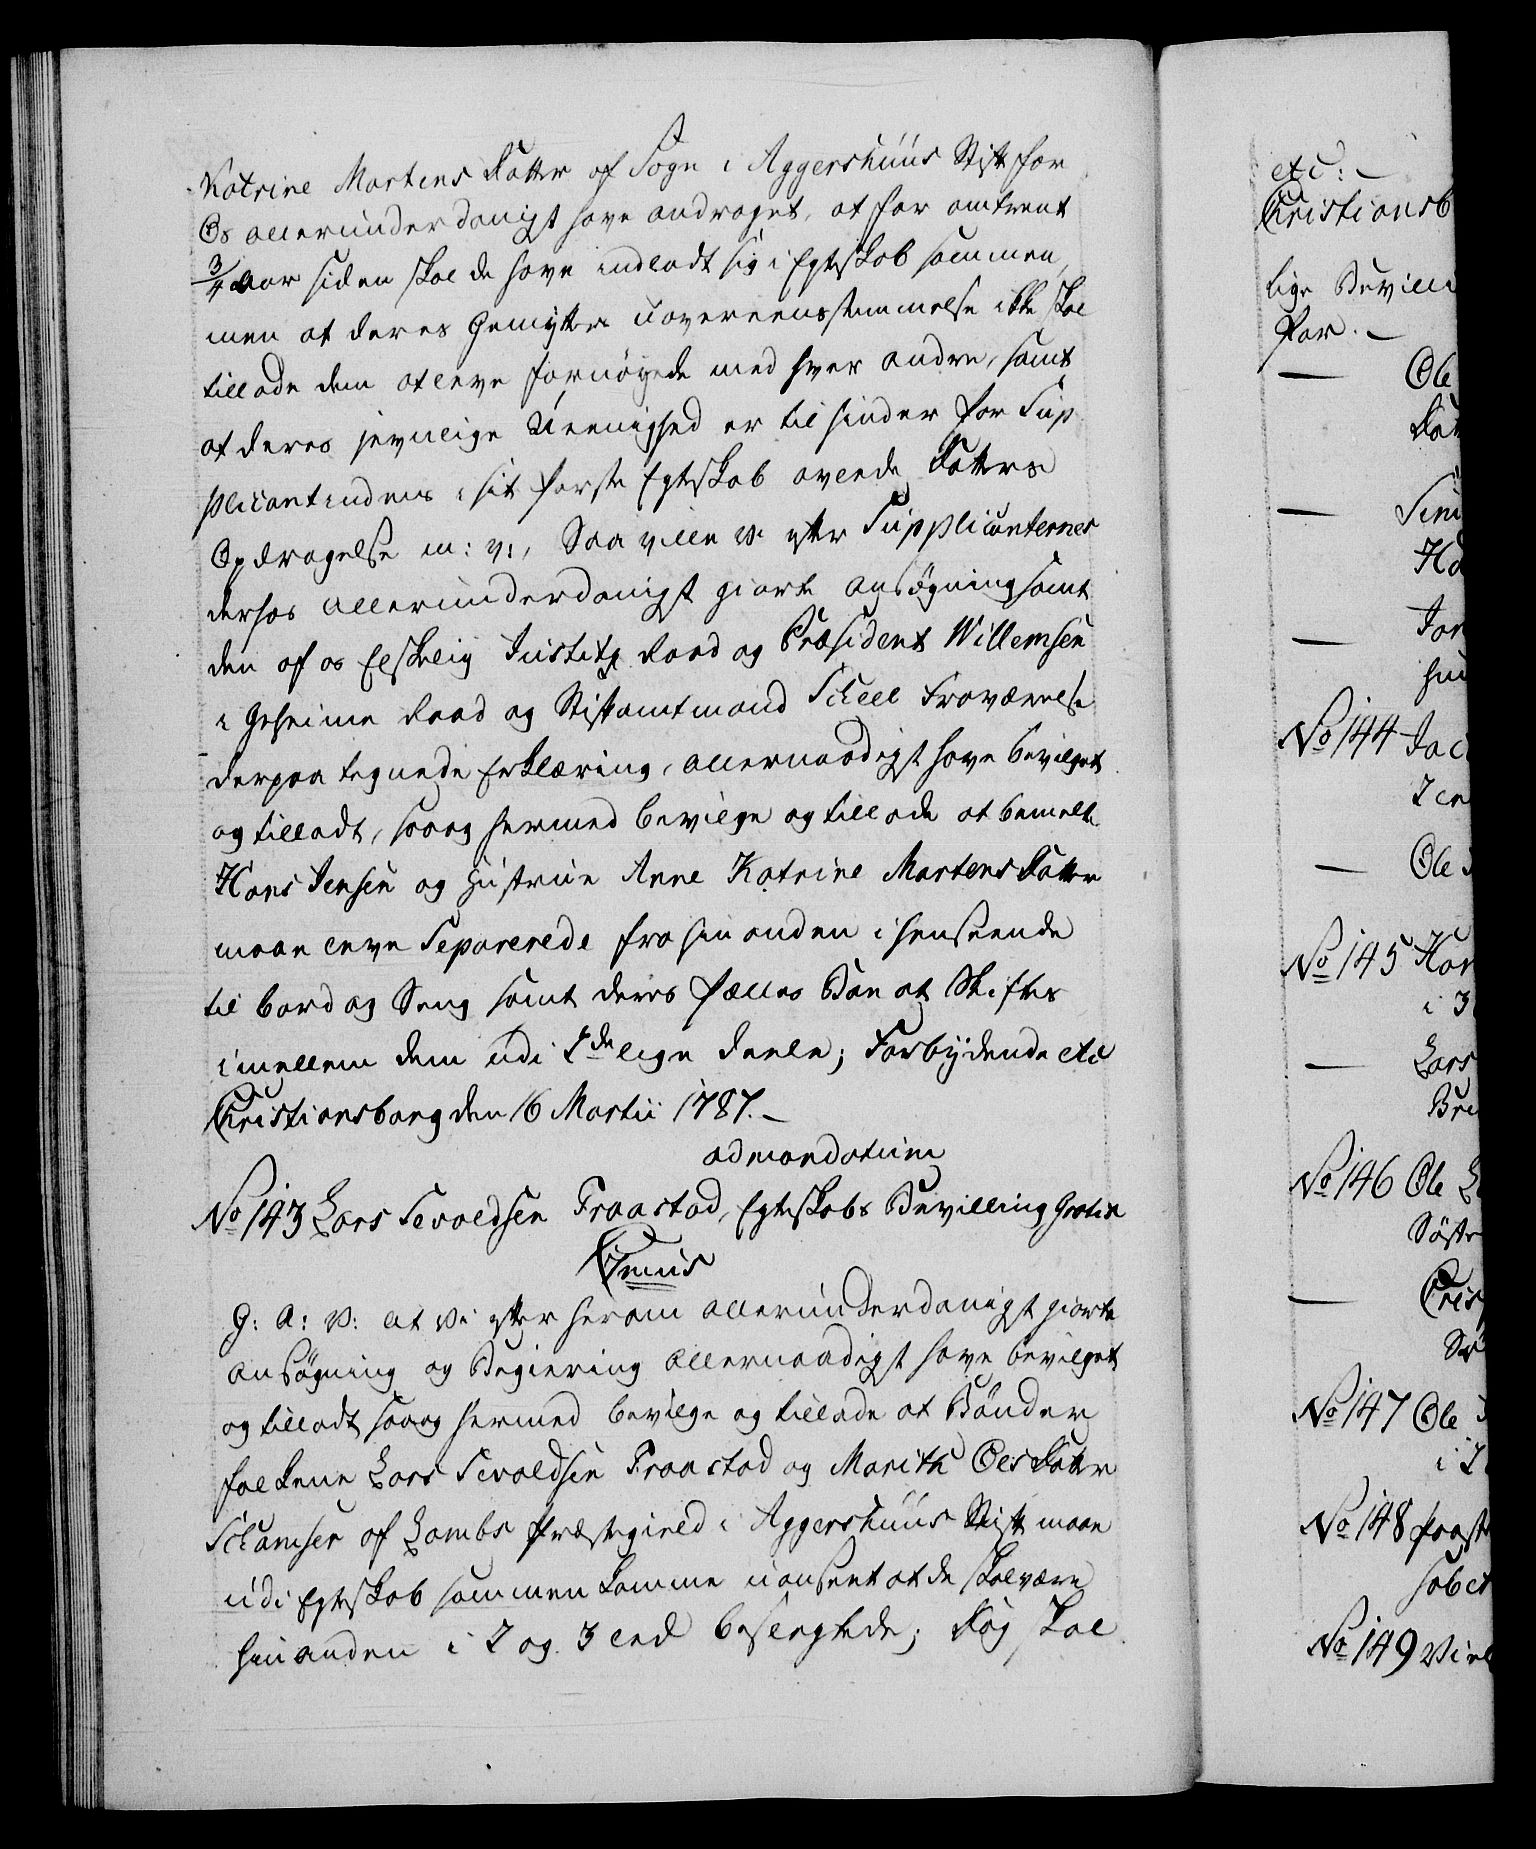 Katrine Martens Datter af Sogn i Aggershuus Stift for
Os allerunderdanigst have andraget, at for omtrent
3/4 Aar siden skal de have indladt sig i Egteskab sammen,
men at deres Gemytters uovereensstemmelse ikke skal
tillade dem at leve fornøyede med hver andre, samt
at deres jevnlige Ueenighed er til hinder for Sup
plicantindens i sit første Egteskab avlede Datters
Opdragelse m: v:, Saa ville Vi efter Supplicanternes
derhos allerunderdanigst giorte ansøgning samt
den af os Elskelig Justitz Raad og Præsident Willemsen
i Geheime Raad og Stiftamtmand Scheel Fraværelse
derpaa tegnede Erklæring, allernaadigst have bevilget
og tilladt, saa og hermed bevilge og tillade at bemelte
Hans Jensen og Hustrue Anne Katrine Martens Datter
maae leve Separerede fra hin anden i henseende
til bord og Seng samt deres fælles Boe at Skiftes
imellem dem udi 2de lige deele; Forbydende etc
Christiansborg den 16 Martii 1787.-
ad mandatum
No 143 Lars Sevaldsen Fraastad, Egteskabs Bevilling Gratis
C 7mus
G: A: V: at Vi efter herom allerunderdanigst giorte
ansøgning og Begiering allernaadigst have bevilget
og tilladt saa og hermed bevilge og tillade at Bønder
folkene Lars Sevaldsen Fraastad og Marith Oles Datter
af Lombs Præstegield i Aggershuus Stift maae
udi Egteskab sammen komme uanseet at de skal være
hinanden i 2 og 3 Led beslegtede; Dog skal
etc: -
Christiansb
lige Bevill
for. -
— Ole

—

—
No 144 Jac

— Ole
No 145
i 3
— Lars

No 146 Ole
Søste
—

No 147 Ole
i 2
No 148

No 149